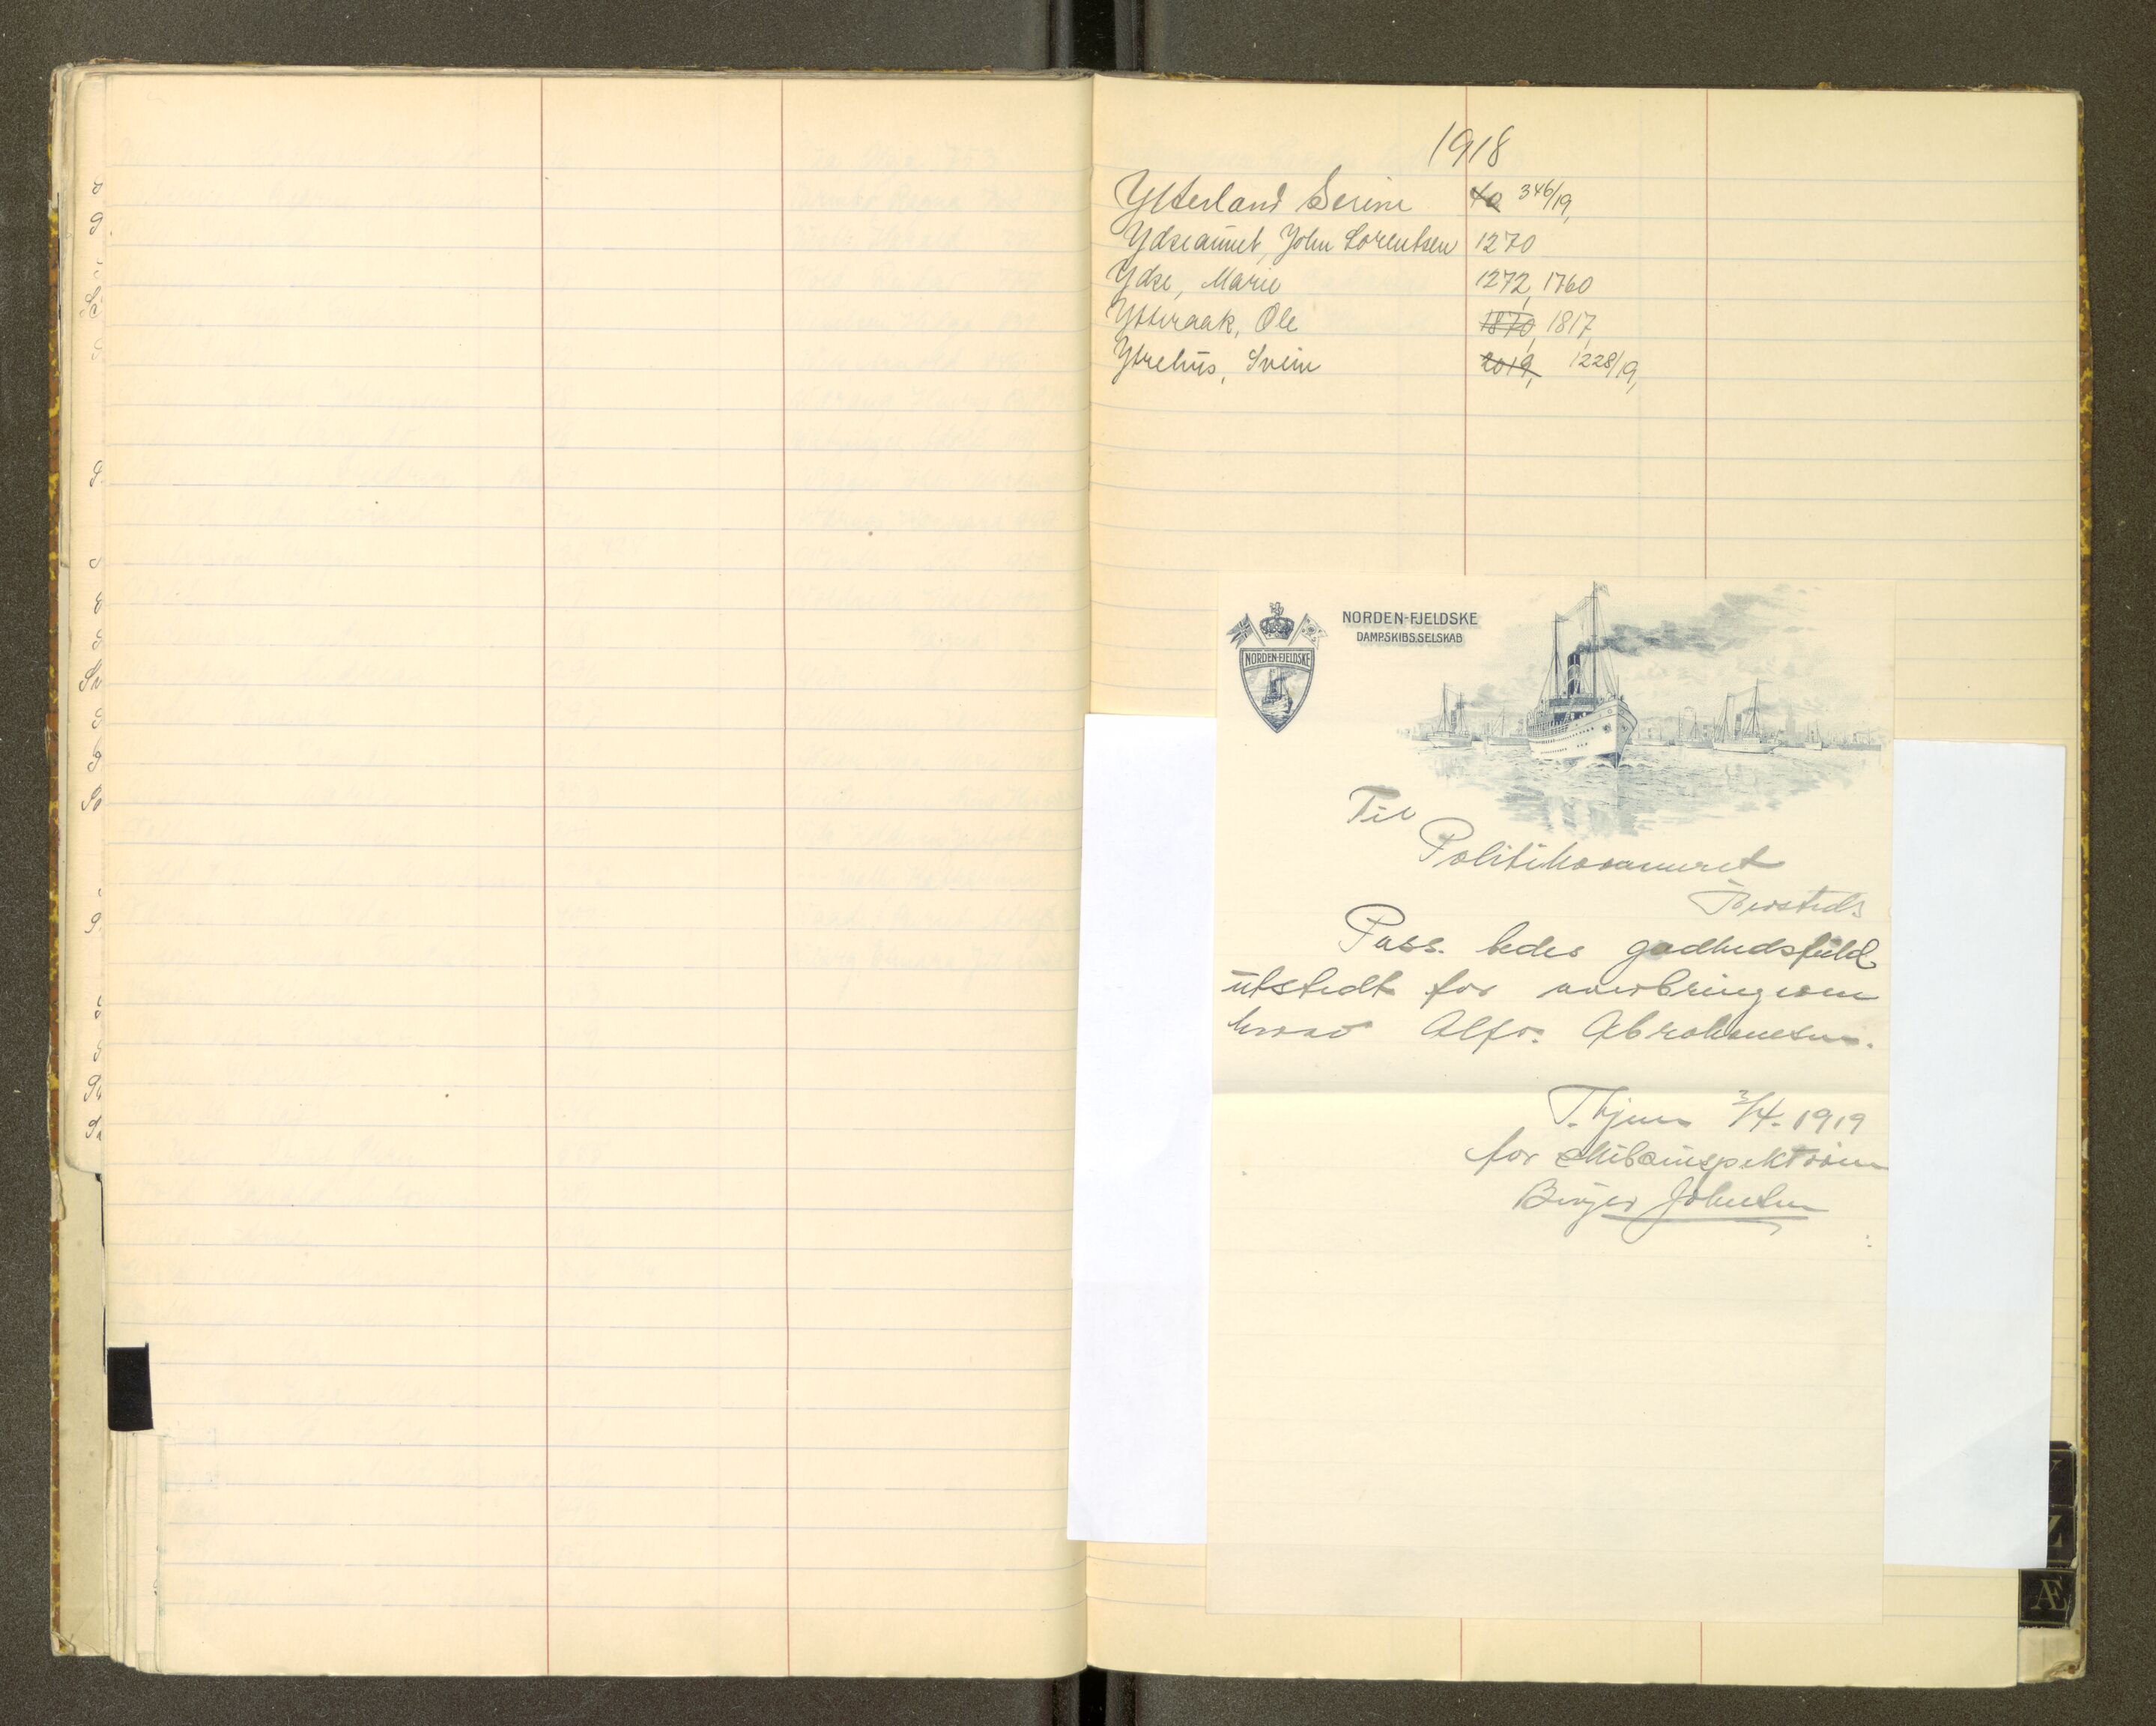 1918
Ytterland Serine 40 346/19,
Ydseaunet, John Lorentsen 1270
Ydse, Marie 1272, 1760
Ytteraak, Ole 1870, 1817,
Ytrehus, Svein 2019, 1228/19,
NORDEN-FJELDSKE
DAMPSKIBS.SELSKAB
NORDEN-FJELDSKE
Til
Politikammeret
Pass. bedes godhedsfuld
utstedt for overbringeren
Alfr. Abrahamsen.
T.hjem 3/4. 1919
for Skibsinspektøren
Birger Johnsen
Z
Æ